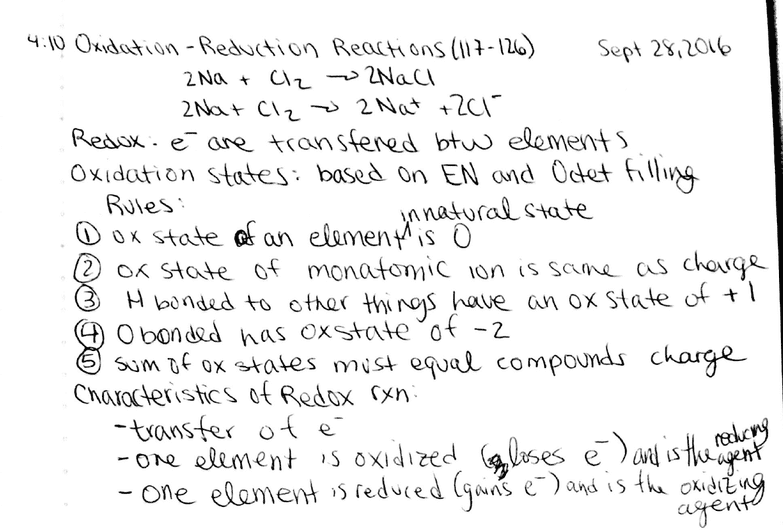 4:10 Oxidation-Reduction Reactions (117-126) Sept 28, 2016
2Na + Cl₂ → 2NaCl
2Na + Cl₂ → 2Na⁺ + 2Cl⁻
Redox: e⁻ are transfered btw elements
Oxidation states: based on EN and Octet filling
Rules:
① ox state of an element in natural state is 0
② ox state of monatomic ion is same as charge
③ H bonded to other things have an ox state of +1
④ O bonded has ox state of -2
⑤ sum of ox states must equal compounds charge
Characteristics of Redox rxn:
- transfer of e⁻
- one element is oxidized (loses e⁻) and is the reducing agent
- one element is reduced (gains e⁻) and is the oxidizing agent